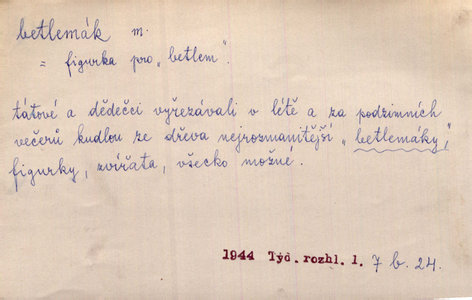 betlemák m.
= figurka pro „betlem".
tátové a dědečci vyřezávali v létě a za podzimních
večerů kudlou ze dřeva nejrozmanitější „betlemáky,"
figurky, zvířata, všecko možné.
1944 Týd. rozhl. 1. 7 b. 24.